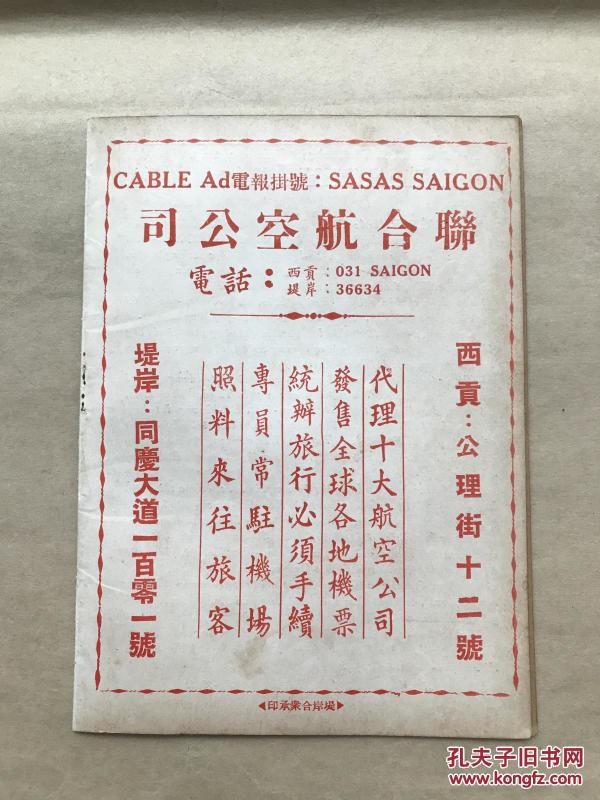 CABLE Ad電報掛號：SASAS SAIGON
聯合航空公司
電話：
西貢：031 SAIGON
堤岸：36634
西貢：公理街十二號
代理十大航空公司
發售全球各地機票
統辦旅行必須手續
專員常駐機場
照料來往旅客
堤岸：同慶大道一百零一號
堤岸合衆承印
孔夫子旧书网
www.kongfz.com